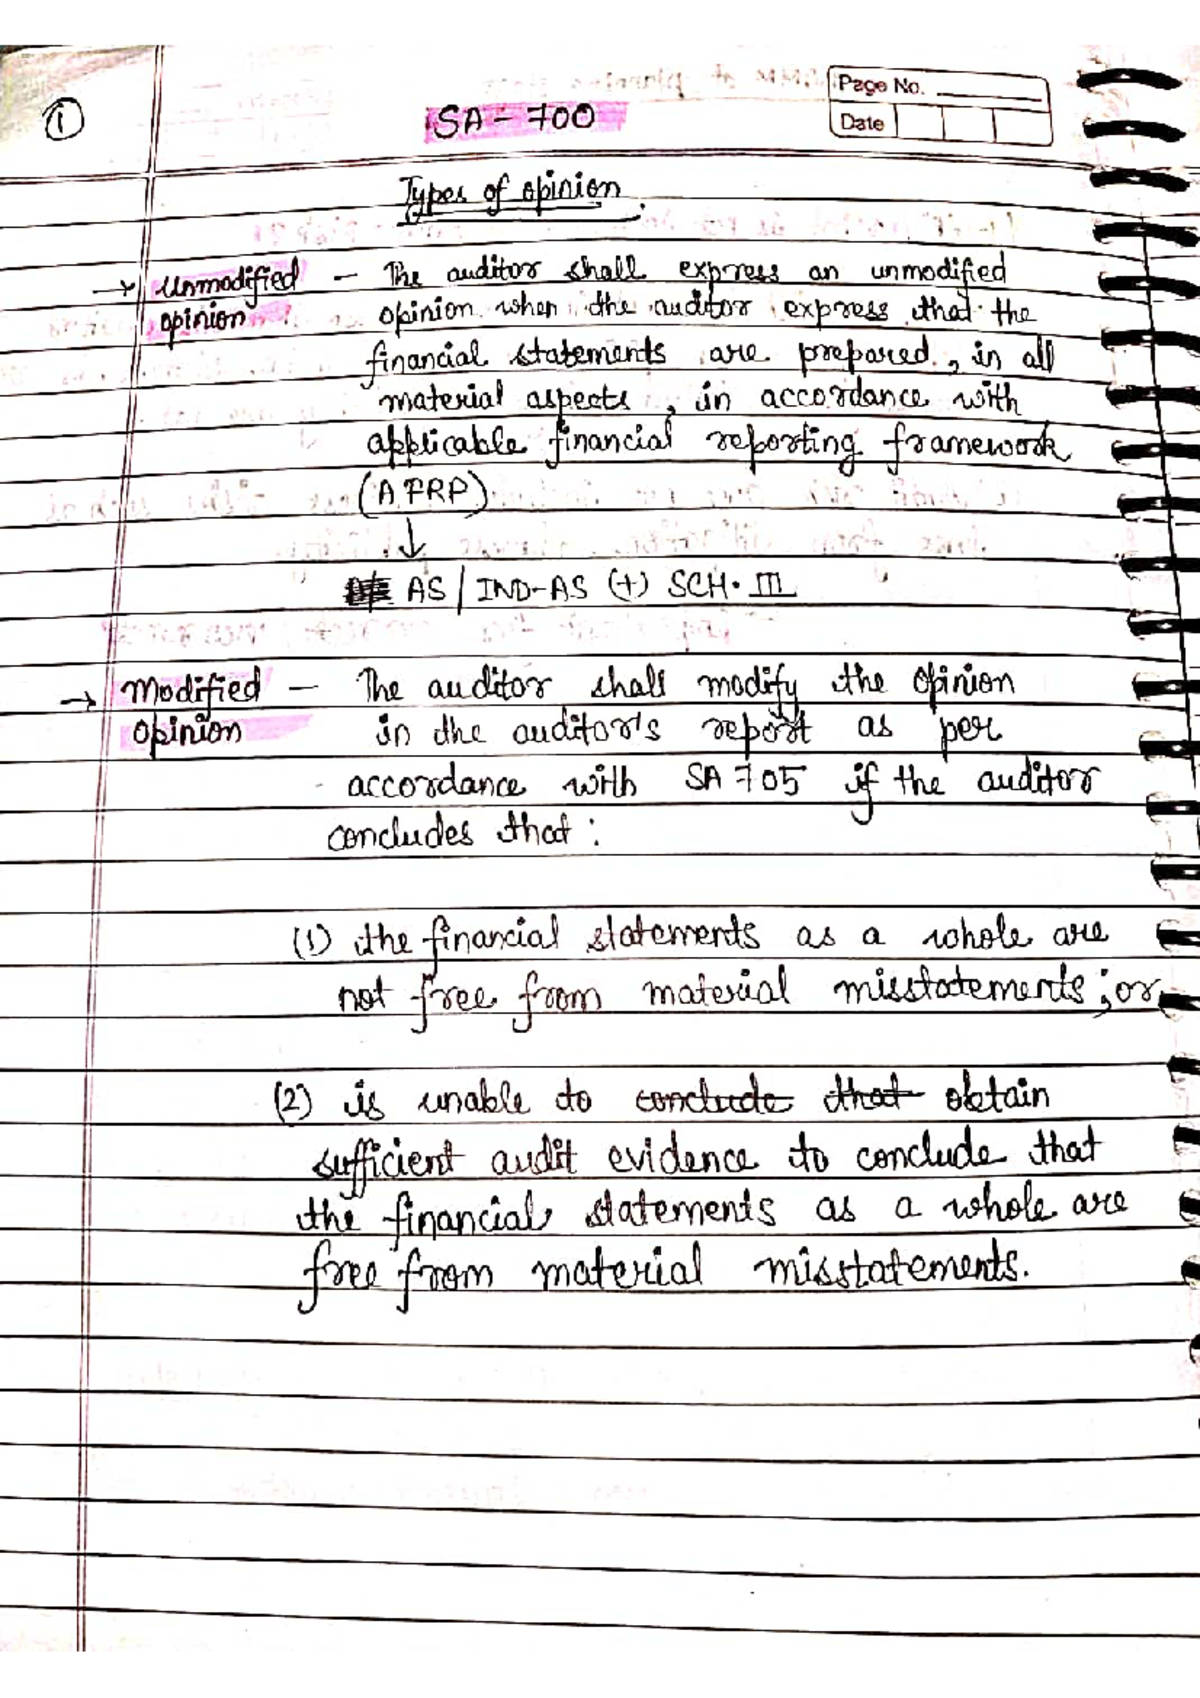 1
SA - 700
Page No.
Date
Types of opinion
→ Unmodified - The auditor shall express an unmodified
opinion opinion when the auditor express that the
financial statements are prepared, in all
material aspects, in accordance with
applicable financial reporting framework
(AFRP)
↓
AS / IND-AS (+) SCH. III
→ Modified - The auditor shall modify the opinion
opinion in the auditor's report as per
accordance with SA 705 if the auditor
concludes that :
(1) the financial statements as a whole are
not free from material misstatements ; or
(2) is unable to conclude that obtain
sufficient audit evidence to conclude that
the financial statements as a whole are
free from material misstatements.